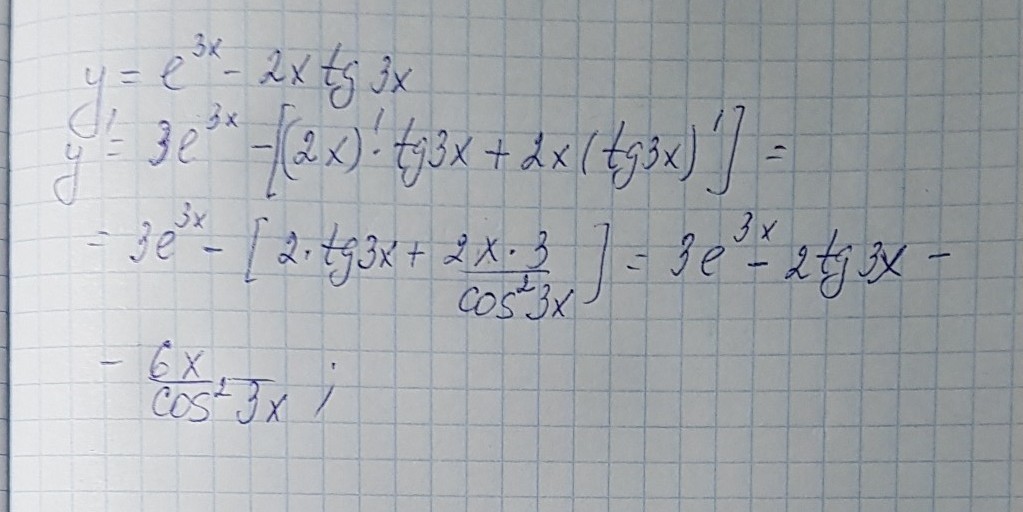 y = e^{3x} - 2x tg 3x
y' = 3e^{3x} - [(2x)' · tg3x + 2x (tg3x)'] =
= 3e^{3x} - [2 · tg3x + \frac{2x · 3}{cos^2 3x}] = 3e^{3x} - 2 tg 3x -
- \frac{6x}{cos^2 3x} ;